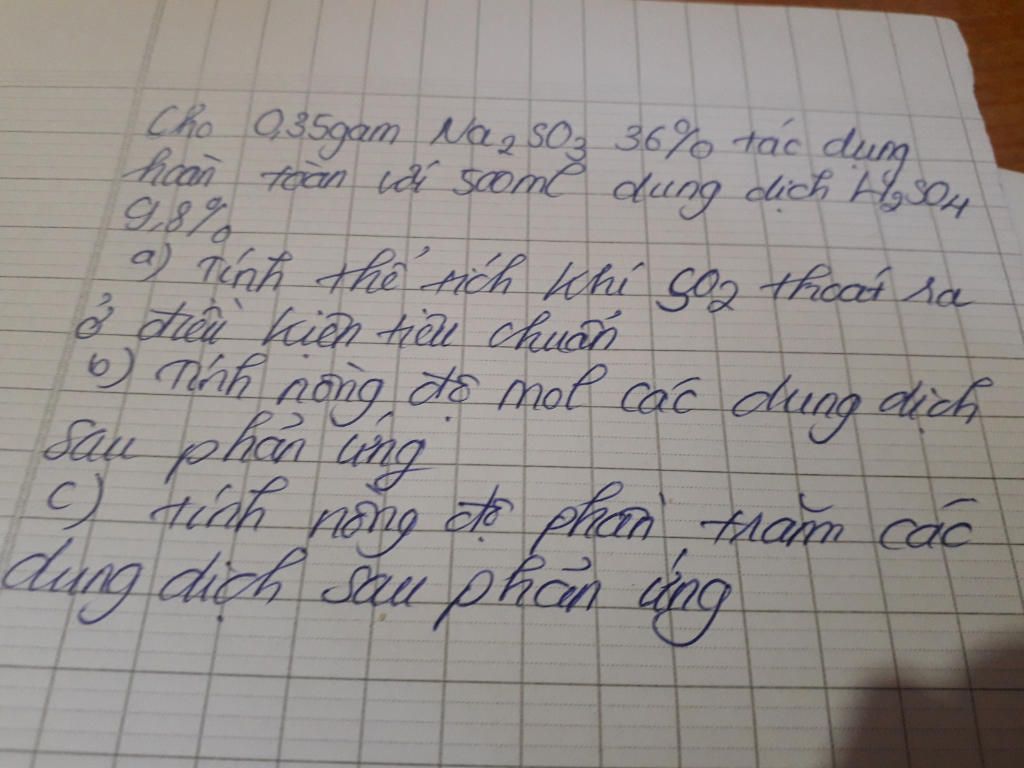 Cho 0,35gam Na₂SO₃ 36% tác dụng
hoàn toàn với 500ml dung dịch H₂SO₄
9,8%
a) Tính thể tích khí SO₂ thoát ra
ở điều kiện tiêu chuẩn
b) Tính nồng độ mol các dung dịch
sau phản ứng
c) tính nồng độ phần trăm các
dung dịch sau phản ứng